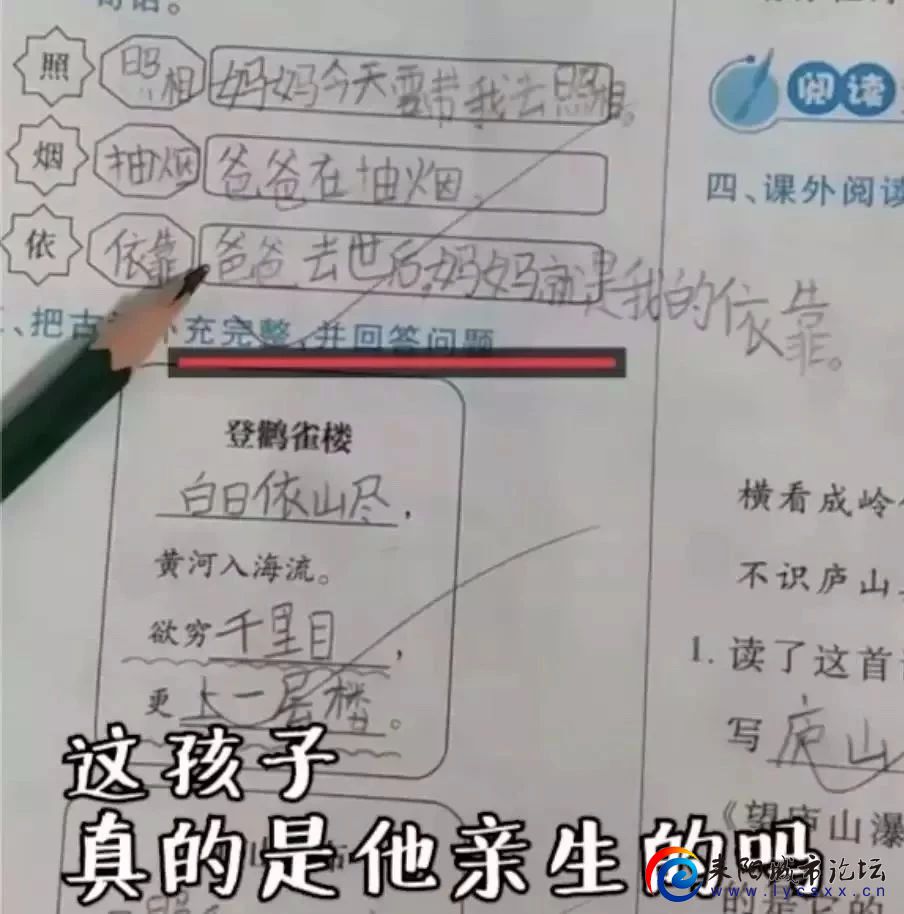 照 照相 妈妈今天要带我去照相。
烟 抽烟 爸爸在抽烟。
依 依靠 爸爸去世后,妈妈就是我的依靠。
把古 补充完整,并回答问题
登鹳雀楼
白日依山尽,
黄河入海流。
欲穷千里目,
更上一层楼。
阅读
四、课外阅读
横看成岭
不识庐山
1. 读了这首
写庐山
《望庐山瀑
这孩子
真的是他亲生的吗
耒阳城市论坛
www.lycsxx.cn